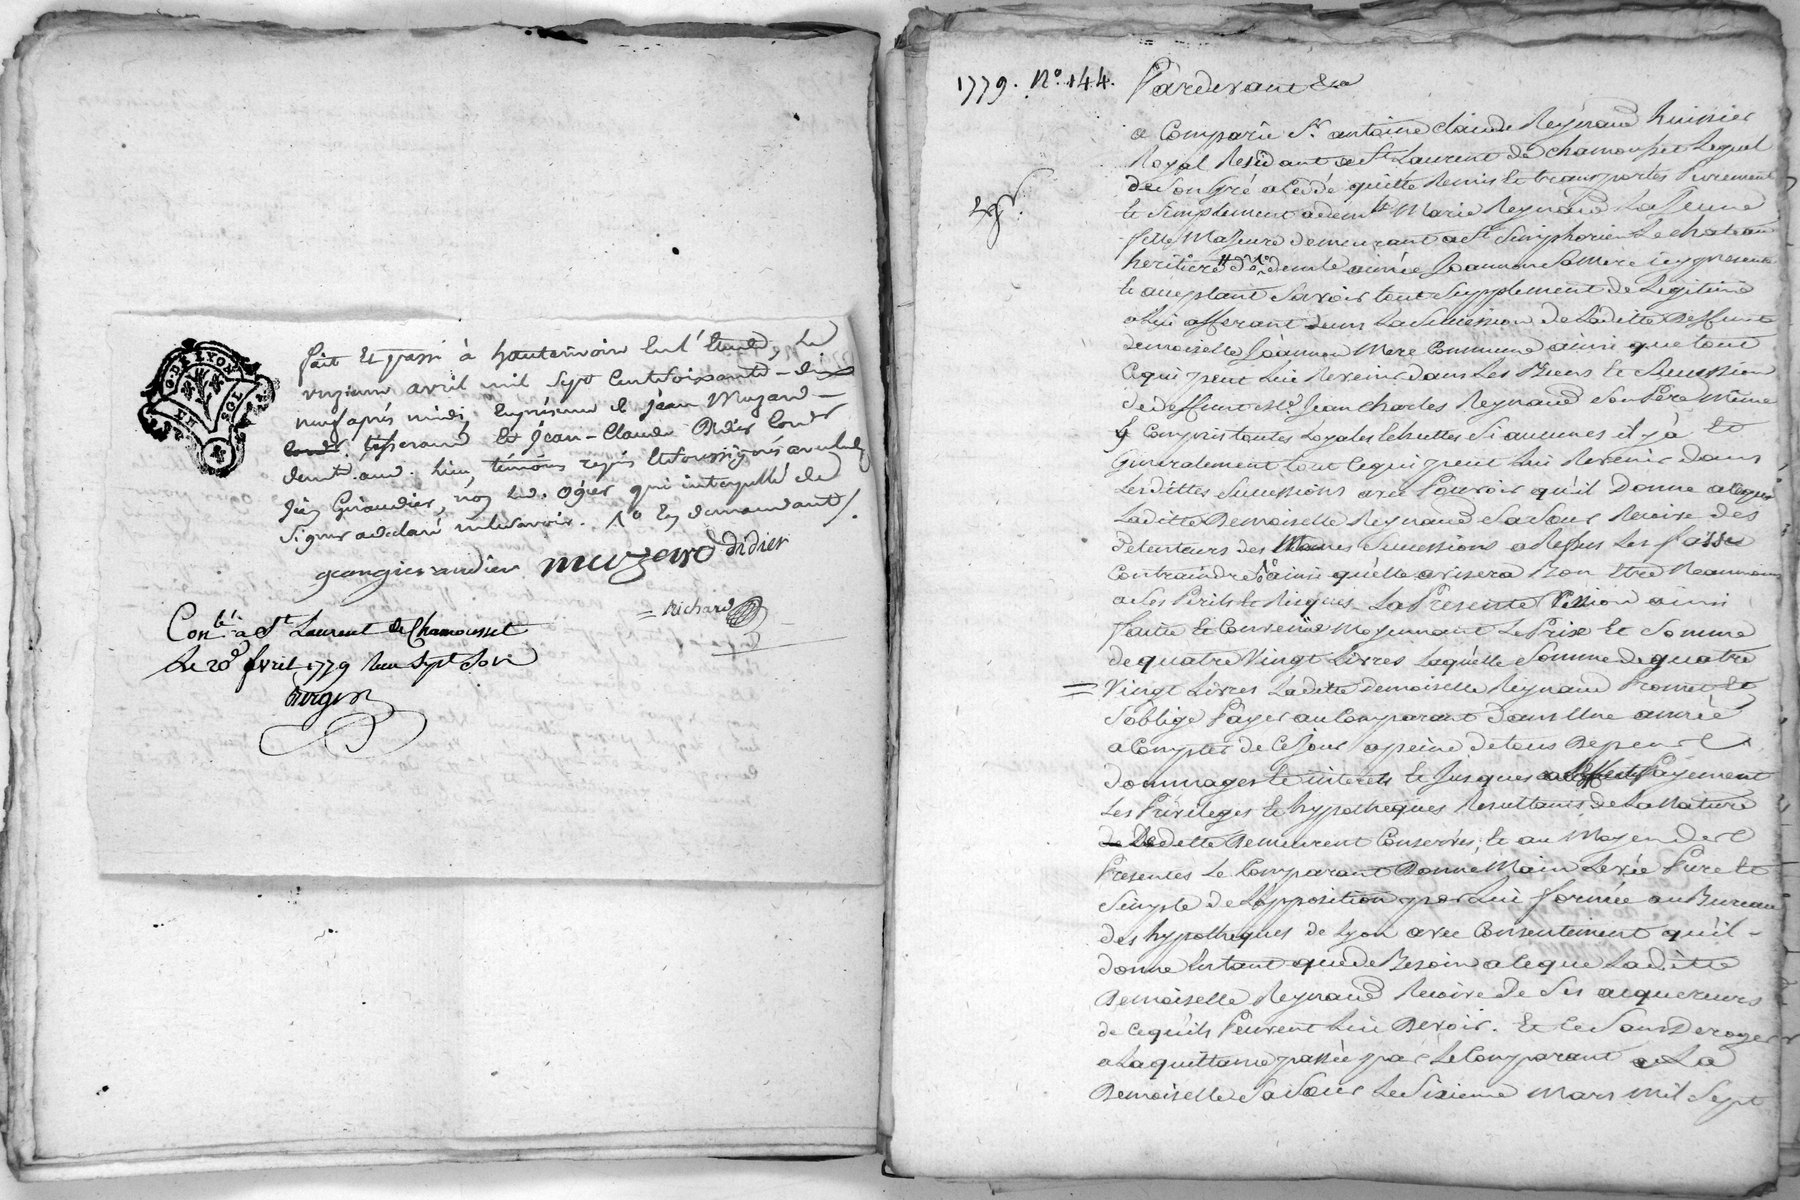 G. DE LYON
EN
SOL
fait et passé à hauterivoire en l'Etude, le
onzieme avril mil sept cent soixante-dix
neuf après midi, En présence de jean Muzard
tisserand Et jean-Claude Didier
demt. aud. lieu, témoins requis Et soussignés avec led.
jean Giraudier, non led. Ogier qui interpellé de
signer a déclaré ne le savoir. De ce demandant /.
jean gieraudier muzard didier
= Richard
Conlé. à St Laurent de Chamousset
Le 20e avril 1779 Reçu Sept Sols
1779. No. 144. Pardevant &a
a Comparû Sr. antoine claude Reynaud huissier
Royal Résidant a St Laurent de chamousset Lequel
de Son Gré a Cédé quitté Remis Et transportés Purement
Et Simplement a demlle Marie Reynaud La Jeune
fille Majeure demeurant a St Simphorien Le chateau
heritiere de demlle aimée Joannon Sa Mere icy presente
Et aceptant Savoir tout Supplement de Legitime
a Lui afferant dans La Succession de Laditte Deffunte
demoiselle Joannon Mere Commune ainsi que tout
Ce qui peut Lui Revenir dans Les Biens Et Succession
de deffunt Me. Jean charles Reynaud Son Père Même
y Compris toutes Loyales Echuttes Si aucunes il y à Et
Generalement tout Ce qui peut Lui Revenir dans
Lesdittes Successions avec Pouvoir qu'il Donne a ceque
Laditte Demoiselle Reynaud Sa Sœur Retire des
detenteurs des Mêmes Successions a l'effet Les fasse
Contraindre ainsi qu'elle avisera Bon Etre Neanmoins
a Ses Perils Et Risques. La Presente Cession ainsi
faitte Et Convenüe Moyennant Le Prix Et Somme
de quatre Vingt Livres Laquelle Somme de quatre
= Vingt Livres Laditte demoiselle Reynaud Promet Et
S'oblige Payer au Comparant Dans Une année
a Compter de Ce Jour a peine de tous Depens
dommages Et interets Et Jusques a L'effectif Payement
Les Privileges Et hypotheques Resultants de La Nature
de La dette Demeurent Conservés; Et au Moyen des
Presentes Le Comparant Donne Main Levée Pure Et
Simple de L'opposition par Lui formée au Bureau
des hypotheques de Lyon avec Consentement qu'il
donne Entant que de Besoin a ce que Laditte
Demoiselle Reynaud Retire de Ses acquereurs
de Ce qu'ils Peuvent Lui Devoir. Et Ce Sans Deroger
a La quittance passée par Le Comparant a La
Demoiselle Sa Sœur Le Sixieme Mars Mil Sept